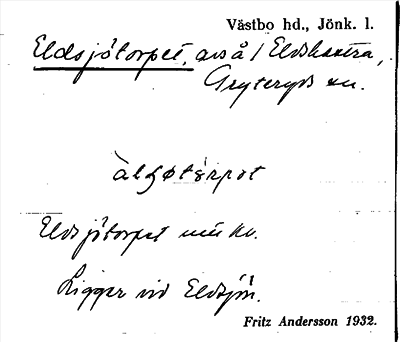 Västbo hd., Jönk. l.
Eldsjötorpet, avs å / Eldshestra,
Gryteryds sn.
Eldsjötorpet
Ligger vid Eldsjön.
Fritz Andersson 1932.